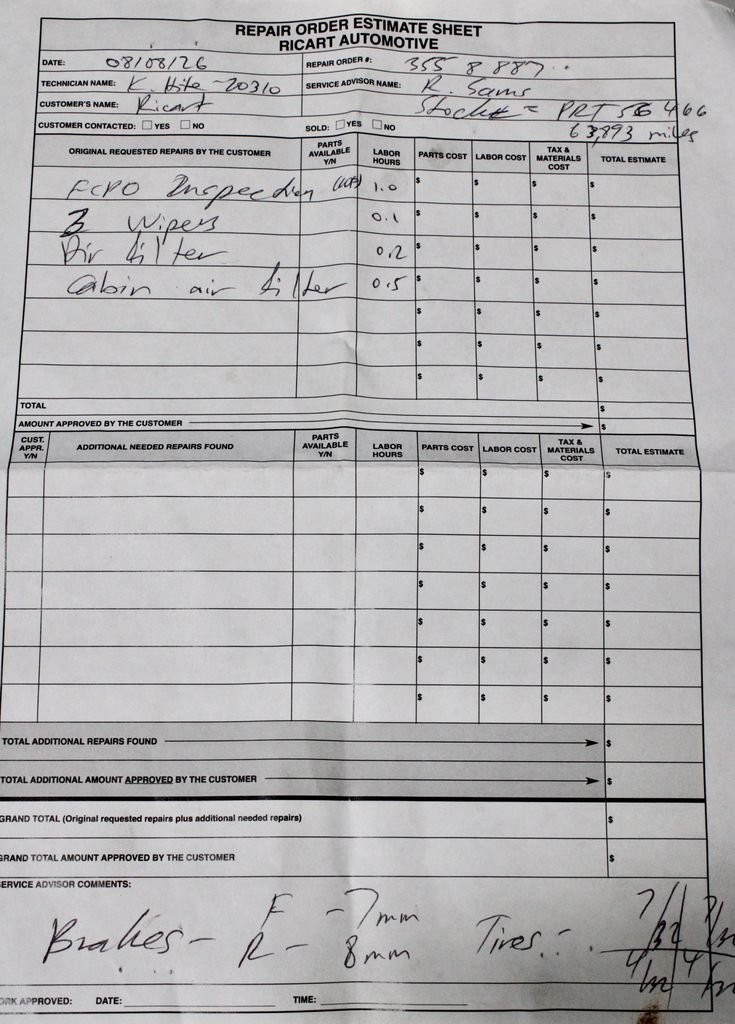 REPAIR ORDER ESTIMATE SHEET
RICART AUTOMOTIVE
DATE: 08/08/26 REPAIR ORDER #: 355 8 887
TECHNICIAN NAME: K. Hite - 20310 SERVICE ADVISOR NAME: R. Sams
CUSTOMER'S NAME: Ricart Stock# = PRT 56 466
CUSTOMER CONTACTED: YES NO SOLD: YES NO 63,893 miles
ORIGINAL REQUESTED REPAIRS BY THE CUSTOMER PARTS AVAILABLE Y/N LABOR HOURS PARTS COST LABOR COST TAX & MATERIALS COST TOTAL ESTIMATE
FCPO Inspection 1.0 $ $ $ $
3 Wipers 0.1 $ $ $ $
Air filter 0.2 $ $ $ $
Cabin air filter 0.5 $ $ $ $
$ $ $ $
$ $ $ $
$ $ $ $
TOTAL $
AMOUNT APPROVED BY THE CUSTOMER $
CUST. APPR. Y/N ADDITIONAL NEEDED REPAIRS FOUND PARTS AVAILABLE Y/N LABOR HOURS PARTS COST LABOR COST TAX & MATERIALS COST TOTAL ESTIMATE
$ $ $ $
$ $ $ $
$ $ $ $
$ $ $ $
$ $ $ $
$ $ $ $
$ $ $ $
TOTAL ADDITIONAL REPAIRS FOUND $
TOTAL ADDITIONAL AMOUNT APPROVED BY THE CUSTOMER $
GRAND TOTAL (Original requested repairs plus additional needed repairs) $
GRAND TOTAL AMOUNT APPROVED BY THE CUSTOMER $
ERVICE ADVISOR COMMENTS:
Brakes - F - 7mm Tires: 7/32 7/32
R - 8mm 4/32 4/32
ORK APPROVED: DATE: TIME: